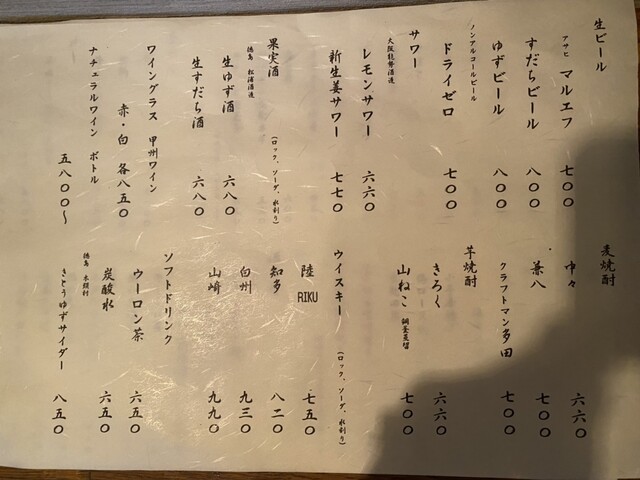 生ビール
アサヒ マルエフ 七〇〇
すだちビール 八〇〇
ゆずビール 八〇〇
ノンアルコールビール
ドライゼロ 七〇〇
サワー
大阪能勢酒造
レモンサワー 六六〇
新生姜サワー 七七〇
果実酒 (ロック、ソーダ、水割り)
徳島 松浦酒造
生ゆず酒 六八〇
生すだち酒 六八〇
ワイングラス 甲州ワイン
赤・白 各八五〇
ナチュラルワイン ボトル
五八〇〇〜
麦焼酎
中々 六六〇
兼八 七〇〇
クラフトマン多田 七〇〇
芋焼酎
きろく 六六〇
山ねこ 七〇〇
ウイスキー (ロック、ソーダ、水割り)
陸 RIKU 七五〇
知多 八二〇
白州 九三〇
山崎 九九〇
ソフトドリンク
ウーロン茶 六五〇
炭酸水 六五〇
徳島 木頭村
きとうゆずサイダー 八五〇